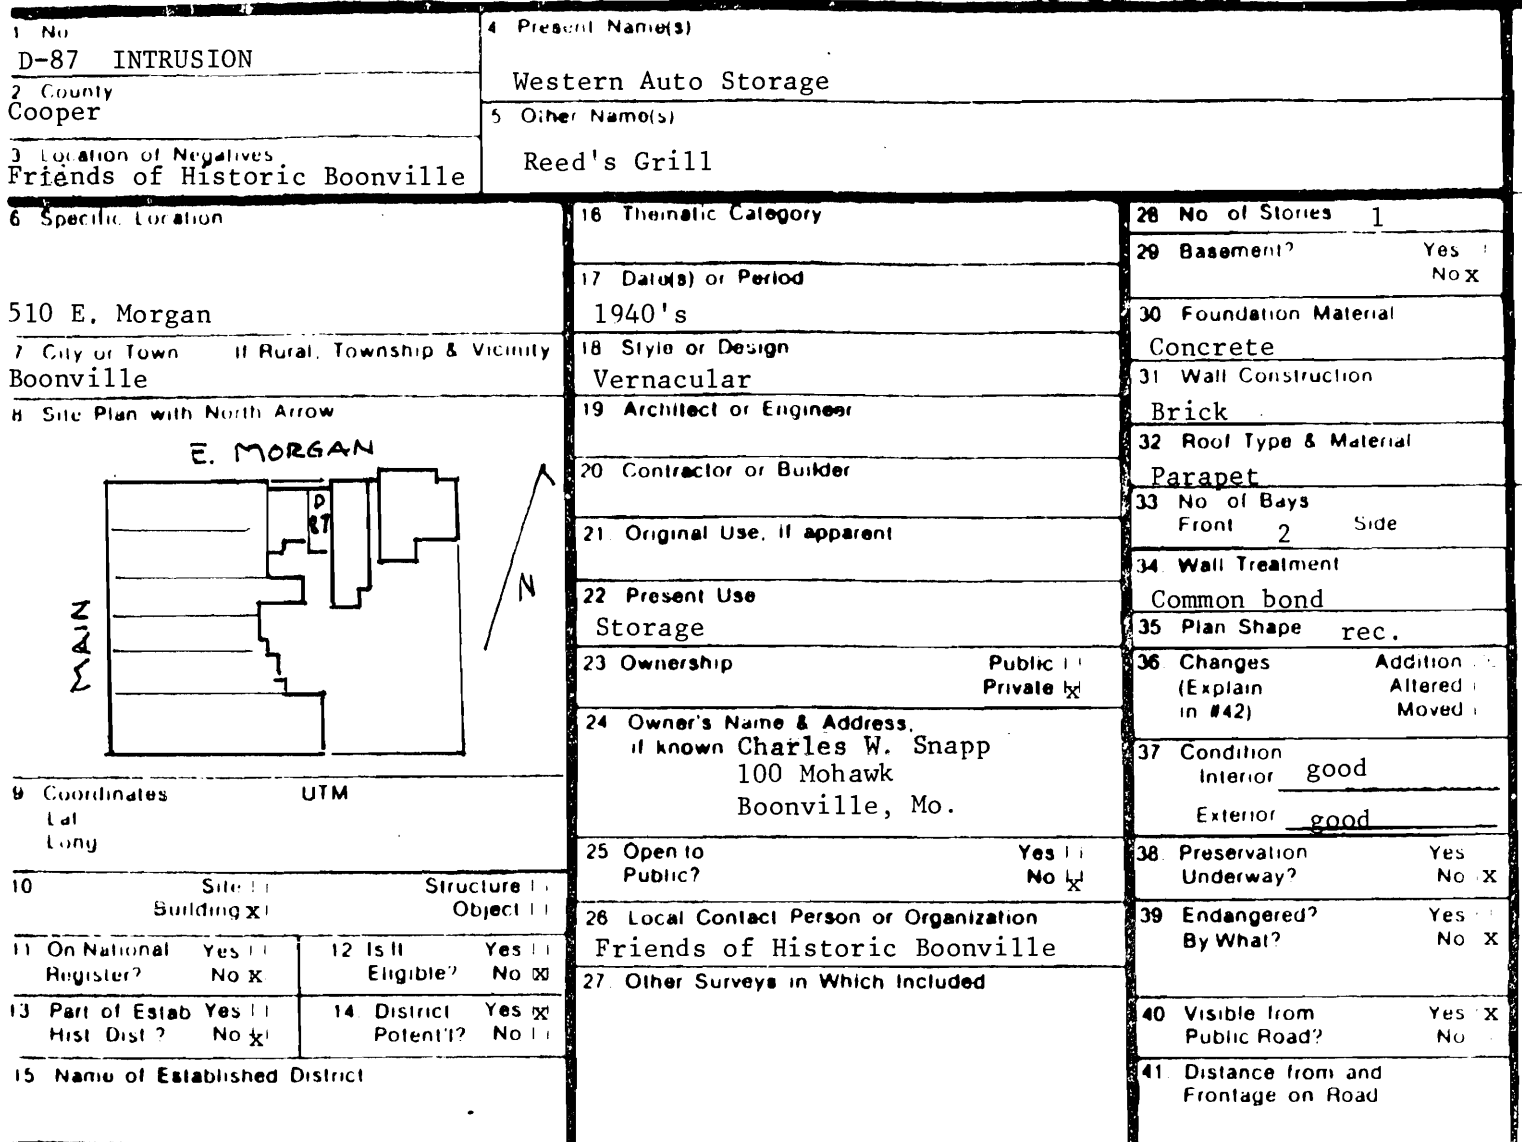 1 No
D-87 INTRUSION
2 County
Cooper
3 Location of Negatives
Friends of Historic Boonville
4 Present Name(s)
Western Auto Storage
5 Other Name(s)
Reed's Grill
6 Specific Location
510 E. Morgan
7 City or Town If Rural, Township & Vicinity
Boonville
8 Site Plan with North Arrow
E. MORGAN
D
87
MAIN
N
9 Coordinates UTM
Lat
Long
10 Site Structure
Building x Object
11 On National Yes
Register? No x
12 Is It Yes
Eligible? No x
13 Part of Estab Yes
Hist Dist? No x
14. District Yes x
Potent'l? No
15 Name of Established District
16 Thematic Category
17 Date(s) or Period
1940's
18 Style or Design
Vernacular
19 Architect or Engineer
20 Contractor or Builder
21. Original Use, if apparent
22 Present Use
Storage
23 Ownership Public
Private x
24 Owner's Name & Address,
if known Charles W. Snapp
100 Mohawk
Boonville, Mo.
25 Open to Yes
Public? No x
26 Local Contact Person or Organization
Friends of Historic Boonville
27. Other Surveys in Which Included
28 No of Stories 1
29 Basement? Yes
No x
30 Foundation Material
Concrete
31 Wall Construction
Brick
32 Roof Type & Material
Parapet
33 No of Bays
Front 2 Side
34. Wall Treatment
Common bond
35 Plan Shape rec.
36 Changes Addition
(Explain Altered
in #42) Moved
37 Condition
Interior good
Exterior good
38. Preservation Yes
Underway? No x
39 Endangered? Yes
By What? No x
40 Visible from Yes x
Public Road? No
41. Distance from and
Frontage on Road